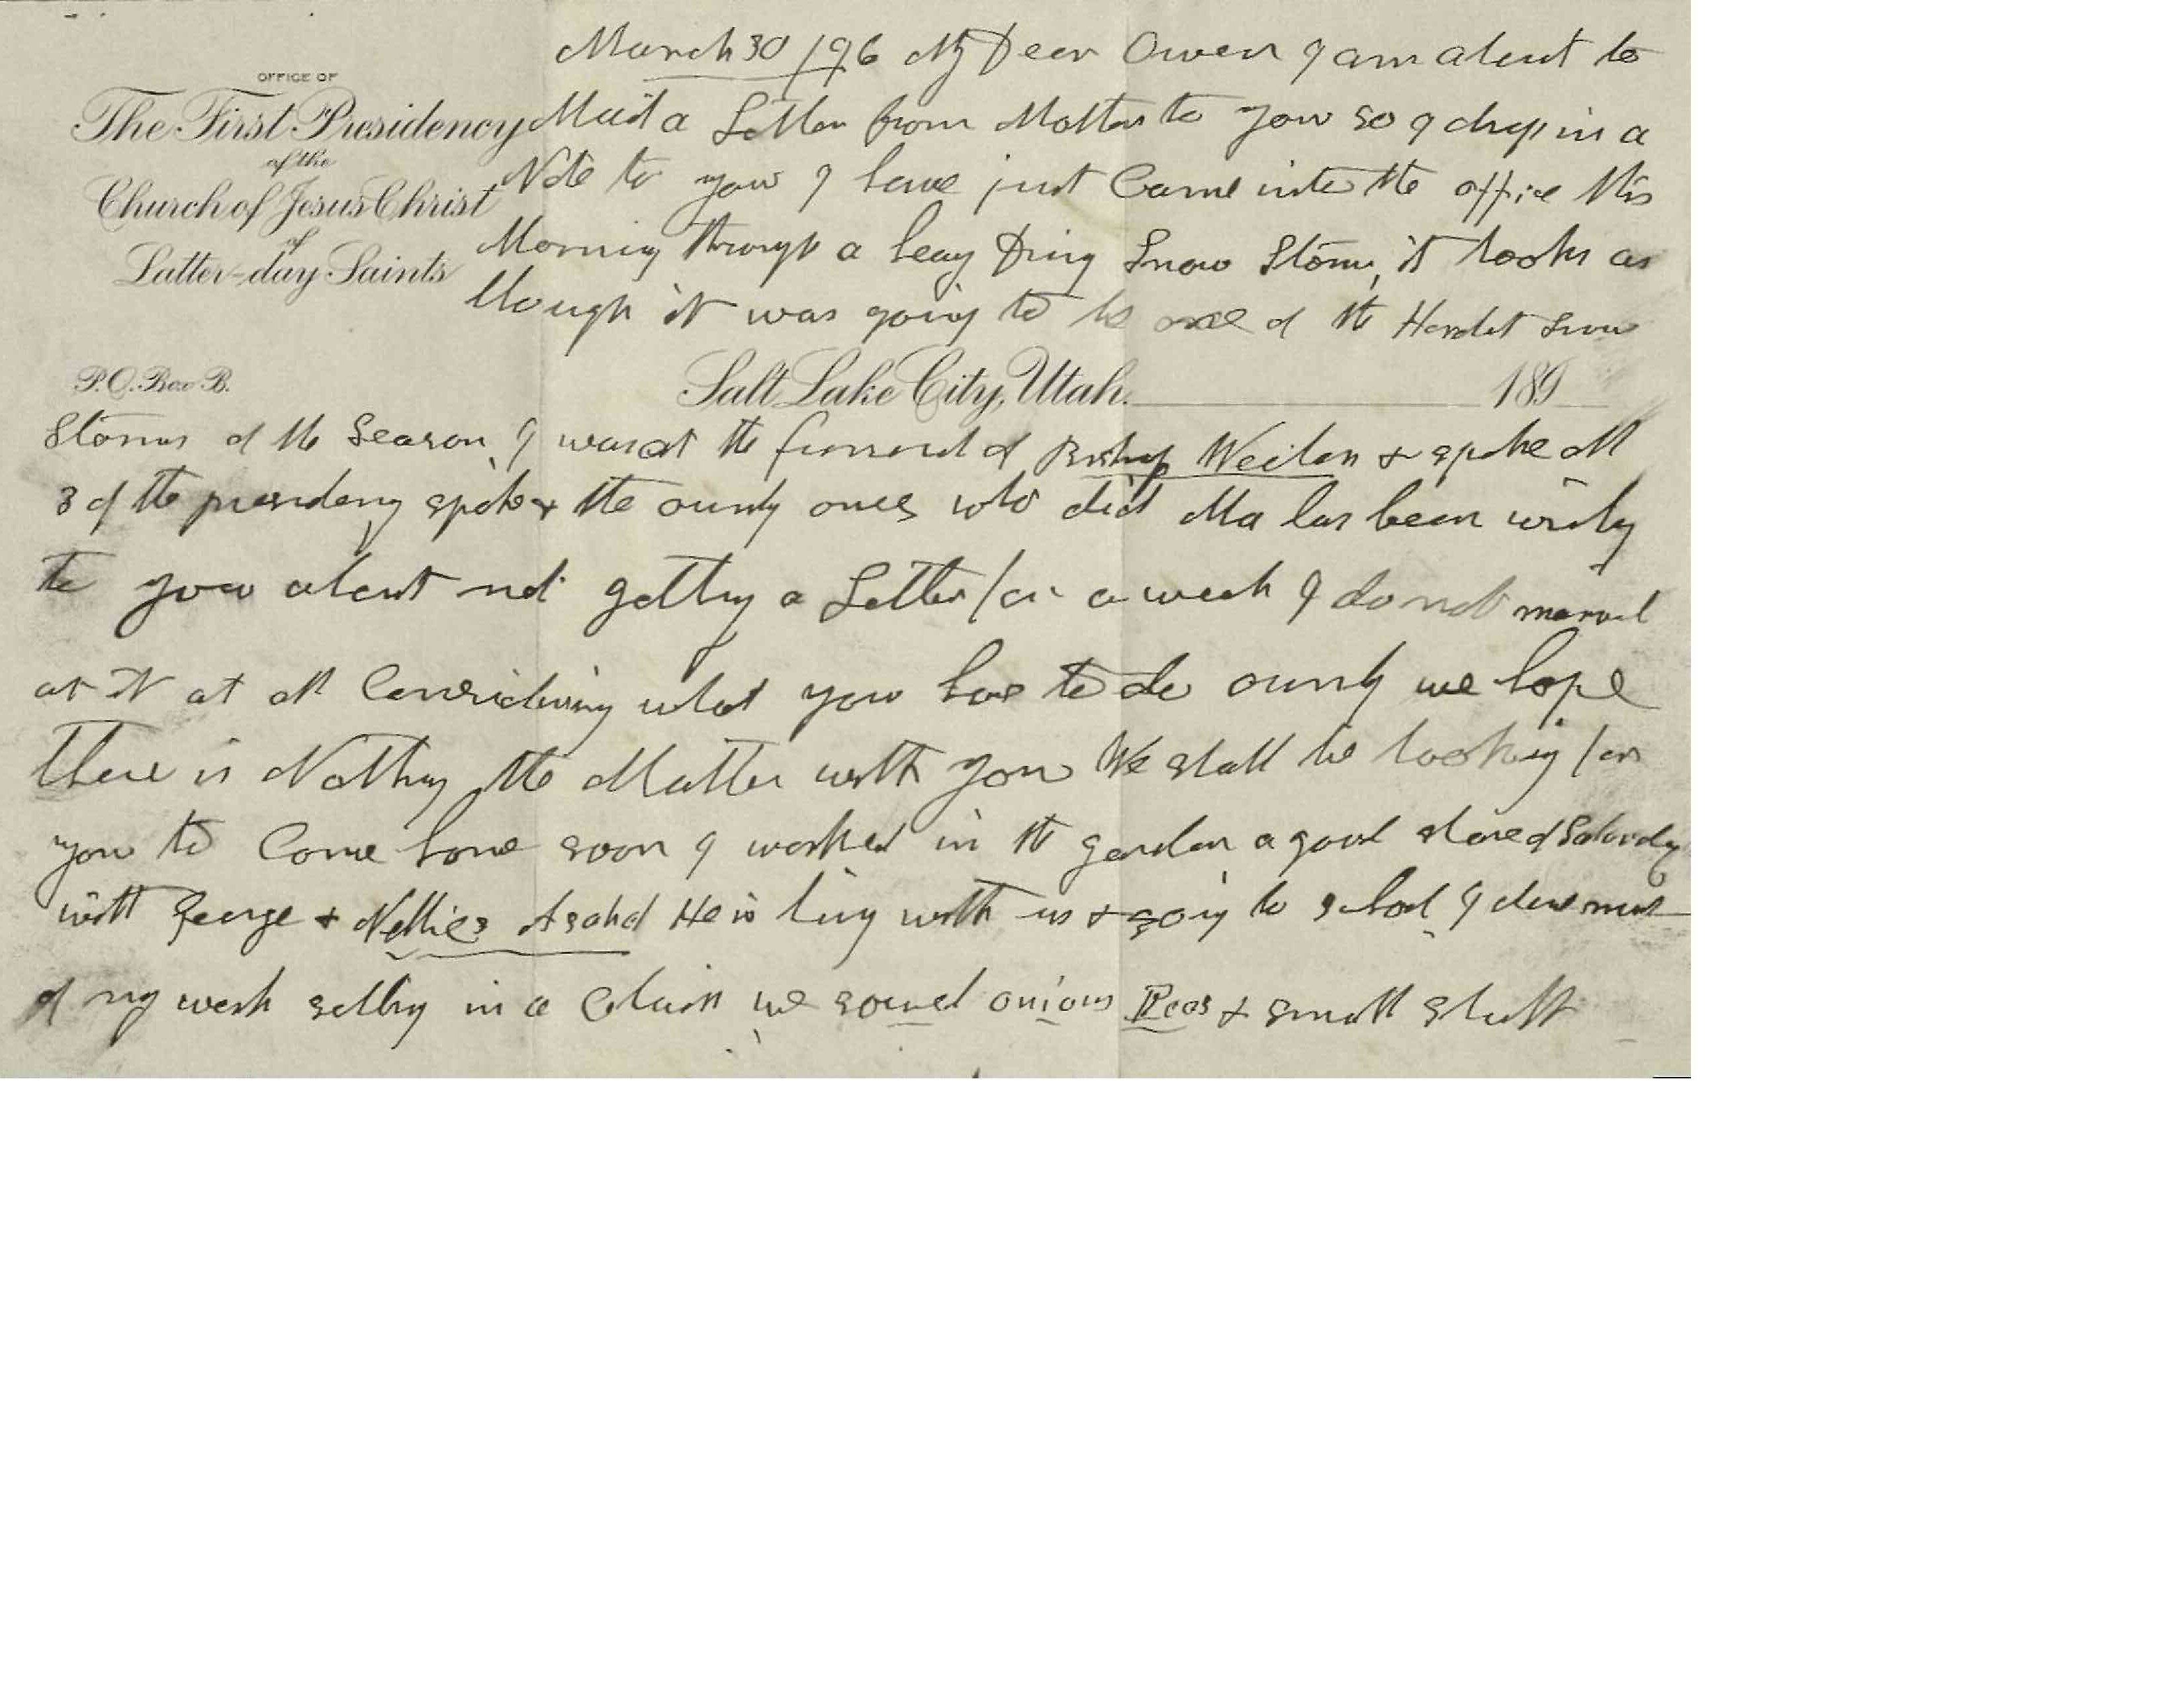 OFFICE OF
The First Presidency
of the
Church of Jesus Christ
of
Latter-day Saints
P.O. Box B.
March 30 /96 My Dear Owen I am about to
Mail a Letter from Mother to you so I drop in a
Note to you I have just Came into the office this
Morning through a heavy Driving Snow Storm, it looks as
though it was going to be one of the Hardest Snow
Salt Lake City, Utah. 189
Storms of the Season, I was at the funeral of Bishop Weiler & spoke all
3 of the presidency spoke & the ounly ones who did Ma has been writing
to you about not getting a Letter for a week I do not marvel
at it at all Considering what you have to do ounly we hope
there is Nothing the Matter with you We shall be looking for
you to Come home soon I worked in the garden a good share of Saturday
with George & Nellies Asahel He is living with us & going to school I done most
of my work setting in a Chair we sowed onions Peas & small stuff